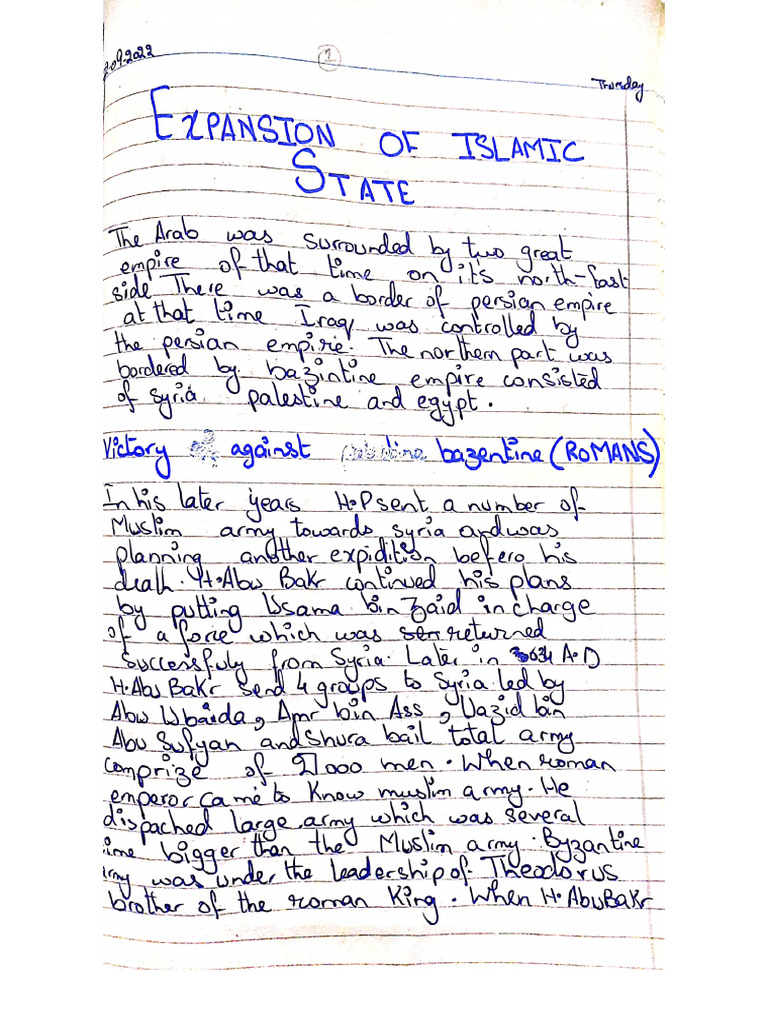 09.2022
1
Thursday
EXPANSION OF ISLAMIC
STATE
The Arab was surrounded by two great
empire of that time on it's north-East
side There was a border of persian empire
at that time Iraq was controlled by
the persian empire. The northern part was
bordered by bazintine empire consisted
of syria palestine and egypt.
Victory against bazentine (ROMANS)
In his later years H.P sent a number of
Muslim army towards syria and was
planning another expidition befero his
death. H.Abu Bakr continued his plans
by putting Usama bin Zaid in charge
of a force which was returned
successfuly from Syria. Later in 634 A.D
H.Abu Bakr send 4 groups to Syria led by
Abu Ubaida, Amr bin Ass, Yazid bin
Abu Sufyan and Shura bail total army
comprize of 27000 men. When roman
emperor came to know muslim army. He
dispached large army which was several
time bigger than the Muslim army. Byzantine
army was under the leadership of Theodorus
brother of the roman King. When H.Abu Bakr